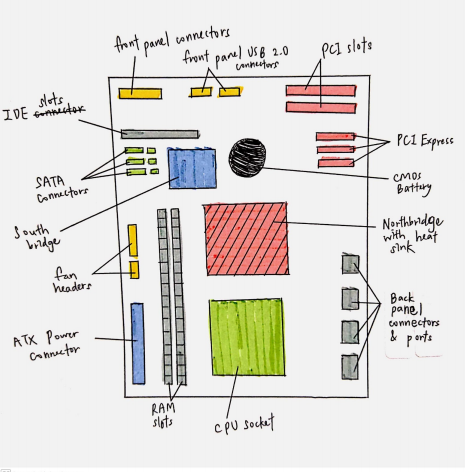 front panel connectors
front panel USB 2.0
connectors
PCI slots
slots
IDE connector
PCI Express
SATA
connectors
CMOS
Battery
South
bridge
Northbridge
with heat
sink
fan
headers
Back
panel
connectors
& ports
ATX Power
connector
RAM
slots
CPU socket